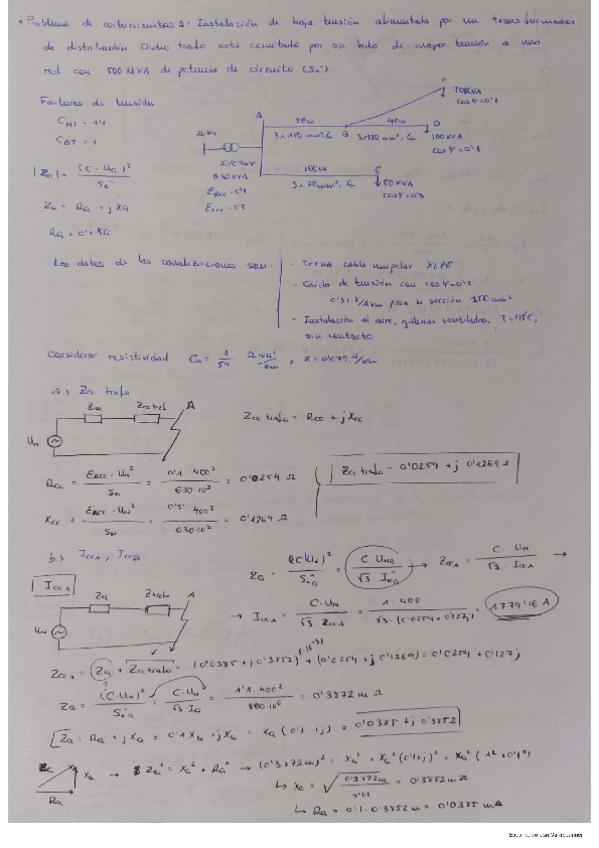 • Problema de cortocircuitos 2: Instalación de baja tensión alimentada por un transformador
de distribución. Dicho trafo está conectado por su lado de mayor tensión a una
red con 500 MVA de potencia de circuito (Sk")
Factores de tensión
CMT = 1'1
CBT = 1
|ZQ| = (C·UQ)² / Sk"
ZQ = RQ + jXQ
RQ = 0'1 XQ
20kV
630 kVA
A
50m
3x150 mm², Cu
B
40m
D
100kVA
cos φ = 0'8
70kVA
cosφ=0'8
100m
3x70mm², Cu
C
50 kVA
Los datos de las canalizaciones son:
- Terna cable unipolar XLPE
- Caída de tensión con cosφ=0'8
para la sección 150mm²
- Instalación al aire, galerías ventiladas,
sin contacto
Considerar resistividad Cu = Ω mm²/km, X =
a) Zcc trafo
ZQ
Zcc traf
A
UN
Zcc trafo = Rcc + jXcc
Rcc = εRcc · UN² / SN = 0'1 · 400² / 630·10³ = 0'0254 Ω
Xcc = εXcc · UN² / SN = 0'5 · 400² / 630·10³ = 0'1269 Ω
Zcc trafo = 0'0254 + j 0'1269 Ω
b) IccA, IccB
IccA
ZQ
Ztrafo
A
UN
ZQ = (C·UN)² / SkQ" = C·UNQ / √3 IkQ" → ZccA = C·UN / √3 · IccA →
→ IccA = C·UN / √3 · ZccA = 1·400 / √3 · (0'0254 + 0'127j) = 1779'16 A
ZccA = ZQ + Zcc trafo = (0'0385 + j0'3852)·10⁻³ + (0'0254 + j 0'1269) = 0'0254 + 0'127j
ZQ = (C·UN)² / SkQ" = C·UN / √3 IQ = 1'1·400² / 500·10⁶ = 0'3872 mΩ
ZQ = RQ + jXQ = 0'1XQ + jXQ = XQ (0'1 + j) = 0'0385 + j 0'3852
RQ
XQ
→ ZQ² = XQ² + RQ² → (0'3872m)² =
↳ XQ = = 0'3852 mΩ
↳ RQ = 0'1 · 0'3852m = 0'0385 mΩ